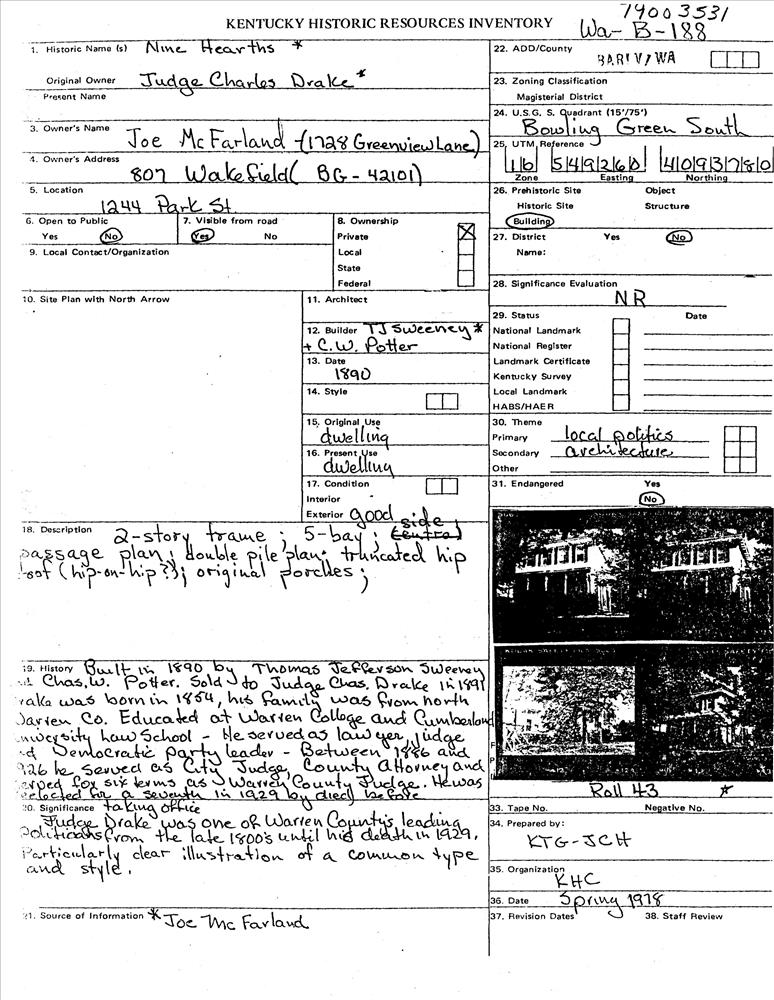 79003531
KENTUCKY HISTORIC RESOURCES INVENTORY
Wa-B-188
1. Historic Name (s) Nine Hearths *
Original Owner Judge Charles Drake *
Present Name
3. Owner's Name Joe McFarland - (1728 Greenview Lane)
4. Owner's Address
807 Wakefield ( BG - 42101)
5. Location
1244 Park St.
6. Open to Public
Yes No
7. Visible from road
Yes No
8. Ownership
Private
Local
State
Federal
9. Local Contact/Organization
10. Site Plan with North Arrow
11. Architect
12. Builder TJ Sweeney *
+ C.W. Potter
13. Date
1890
14. Style
15. Original Use
dwelling
16. Present Use
dwelling
17. Condition
Interior
Exterior good
18. Description 2-story frame; 5-bay; central side
passage plan; double pile plan; truncated hip
roof (hip-on-hip?); original porches;
19. History Built in 1890 by Thomas Jefferson Sweeney
Chas. W. Potter. Sold to Judge Chas. Drake in 1891
rake was born in 1854, his family was from north
Warren Co. Educated at Warren College and Cumberland
University Law School - He served as lawyer, judge
Democratic party leader - Between 1886 and
926 he served as City Judge, County Attorney and
erved for six terms as Warren County Judge. He was
elected for a seventh in 1929 by died before
taking office
20. Significance
Judge Drake was one of Warren County's leading
Politicians from the late 1800's until his death in 1929.
Particularly clear illustration of a common type
and style.
21. Source of Information * Joe McFarland
22. ADD/County
BARIV/WA
23. Zoning Classification
Magisterial District
24. U.S.G.S. Quadrant (15'/75')
Bowling Green South
25. UTM Reference
16 549260 4093780
Zone Easting Northing
26. Prehistoric Site Object
Historic Site Structure
Building
27. District Yes No
Name:
28. Significance Evaluation
NR
29. Status Date
National Landmark
National Register
Landmark Certificate
Kentucky Survey
Local Landmark
HABS/HAER
30. Theme
Primary local politics
Secondary architecture
Other
31. Endangered Yes
No
Roll 43 *
33. Tape No. Negative No.
34. Prepared by:
KTG-JCH
35. Organization
KHC
36. Date Spring 1978
37. Revision Dates 38. Staff Review